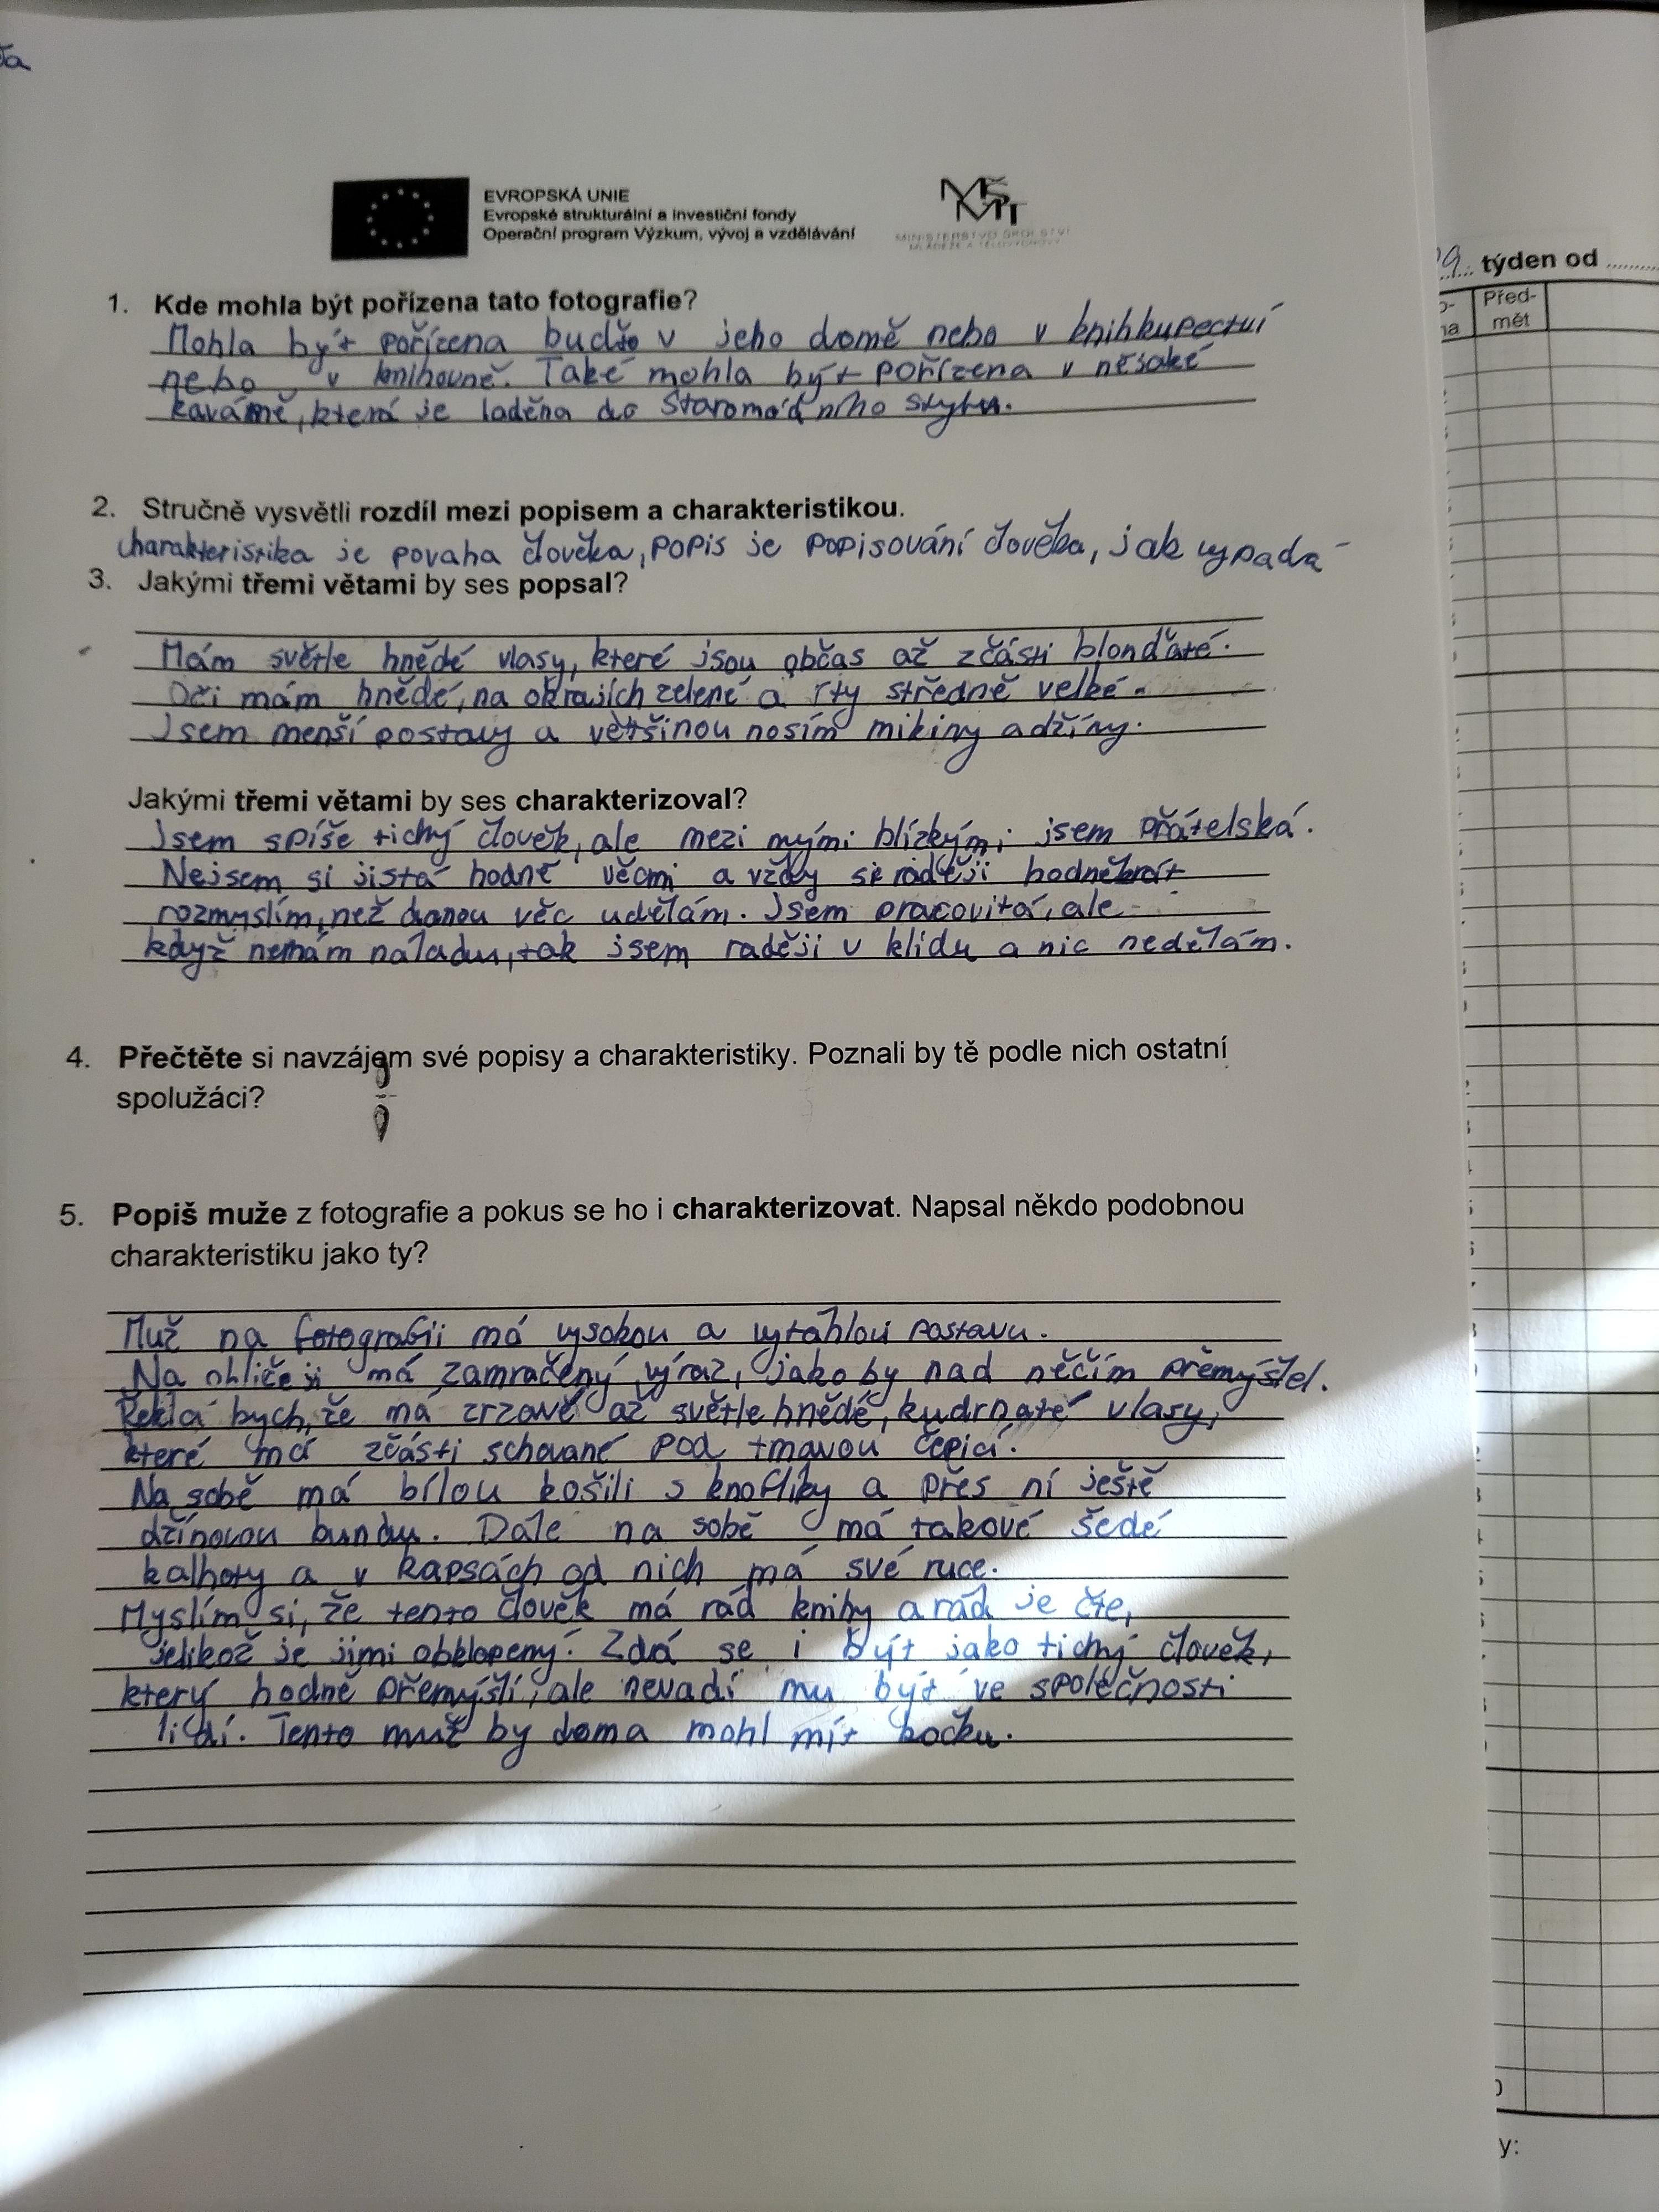 EVROPSKÁ UNIE
Evropské strukturální a investiční fondy
Operační program Výzkum, vývoj a vzdělávání
MINISTERSTVO ŠKOLSTVÍ
MLÁDEŽE A TĚLOVÝCHOVY
1. Kde mohla být pořízena tato fotografie?
Mohla být pořízena buďto v jeho domě nebo v knihkupectví
nebo v knihovně. Také mohla být pořízena v nějaké
kavárně, která je laděna do staromódního stylu.
2. Stručně vysvětli rozdíl mezi popisem a charakteristikou.
charakteristika je povaha člověka, popis je popisování človeka, jak vypadá
3. Jakými třemi větami by ses popsal?
Mám světle hnědé vlasy, které jsou občas až zčásti blonďaté.
Oči mám hnědé, na okrajích zelené a rty středně velké.
Jsem menší postavy a většinou nosím mikiny a džíny.
Jakými třemi větami by ses charakterizoval?
Jsem spíše tichý člověk, ale mezi mými blízkými jsem přátelská.
Nejsem si jistá hodně věcmi a vždy si raději hodněkrát
rozmyslím, než danou věc udělám. Jsem pracovitá, ale
když nemám náladu, tak jsem raději v klidu a nic nedělám.
4. Přečtěte si navzájem své popisy a charakteristiky. Poznali by tě podle nich ostatní
spolužáci?
5. Popiš muže z fotografie a pokus se ho i charakterizovat. Napsal někdo podobnou
charakteristiku jako ty?
Muž na fotografii má vysokou a vytáhlou postavu.
Na obličeji má zamračený výraz, jako by nad něčím přemýšlel.
Řekla bych, že má zrzavé až světle hnědé, kudrnaté vlasy,
které má zčásti schované pod tmavou čepicí.
Na sobě má bílou košili s knoflíky a přes ní ještě
džínovou bundu. Dále na sobě má takové šedé
kalhoty a v kapsách od nich má své ruce.
Myslím si, že tento člověk má rád knihy a rád je čte,
jelikož je jimi obklopený. Zdá se i být jako tichý člověk,
který hodně přemýšlí, ale nevadí mu být ve společnosti
lidí. Tento muž by doma mohl mít kočku.
týden od
Před-
mět
y: